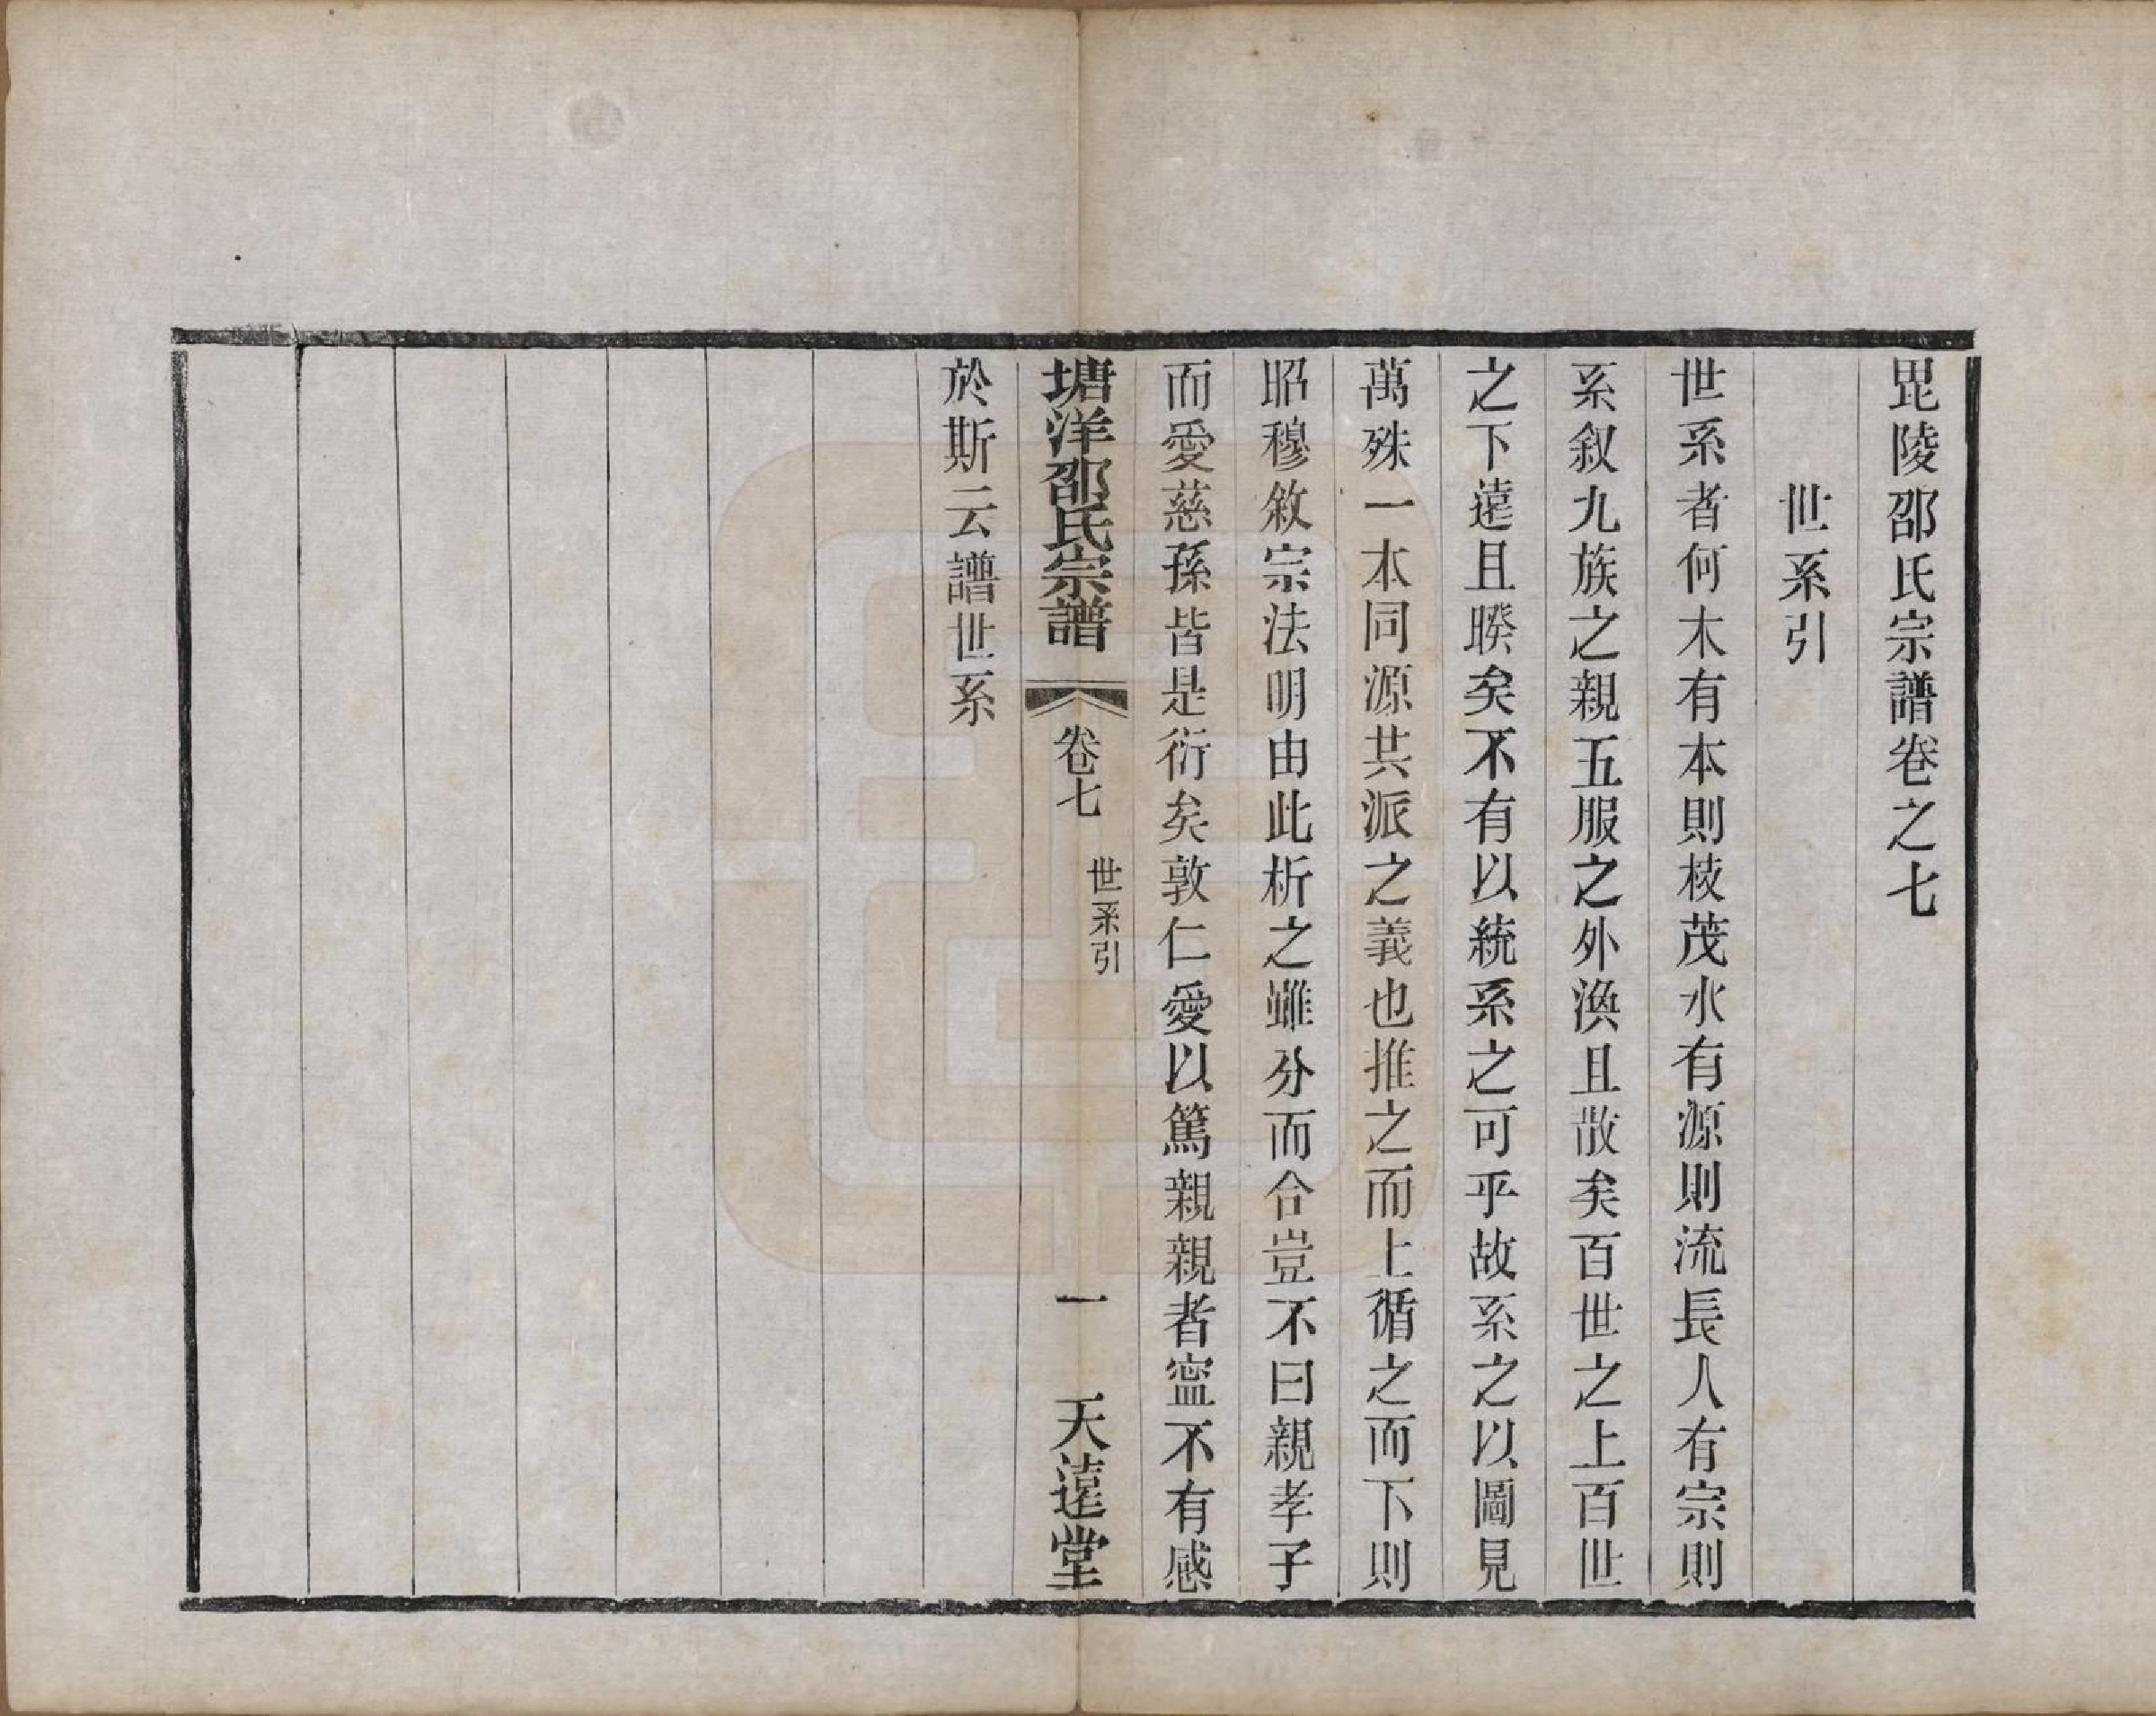 毘陵邵氏宗譜卷之七
世系引
世系者何木有本則枝茂水有源則流長人有宗則
系叙九族之親五服之外渙且散矣百世之上百世
之下遠且暌矣不有以統系之可乎故系之以圖見
萬殊一本同源共派之義也推之而上循之而下則
昭穆敘宗法明由此析之雖分而合豈不曰親孝子
而愛慈孫皆是衍矣敦仁愛以篤親親者寍不有感
塘洋邵氏宗譜 卷七 世系引 一 天遠堂
於斯云譜世系